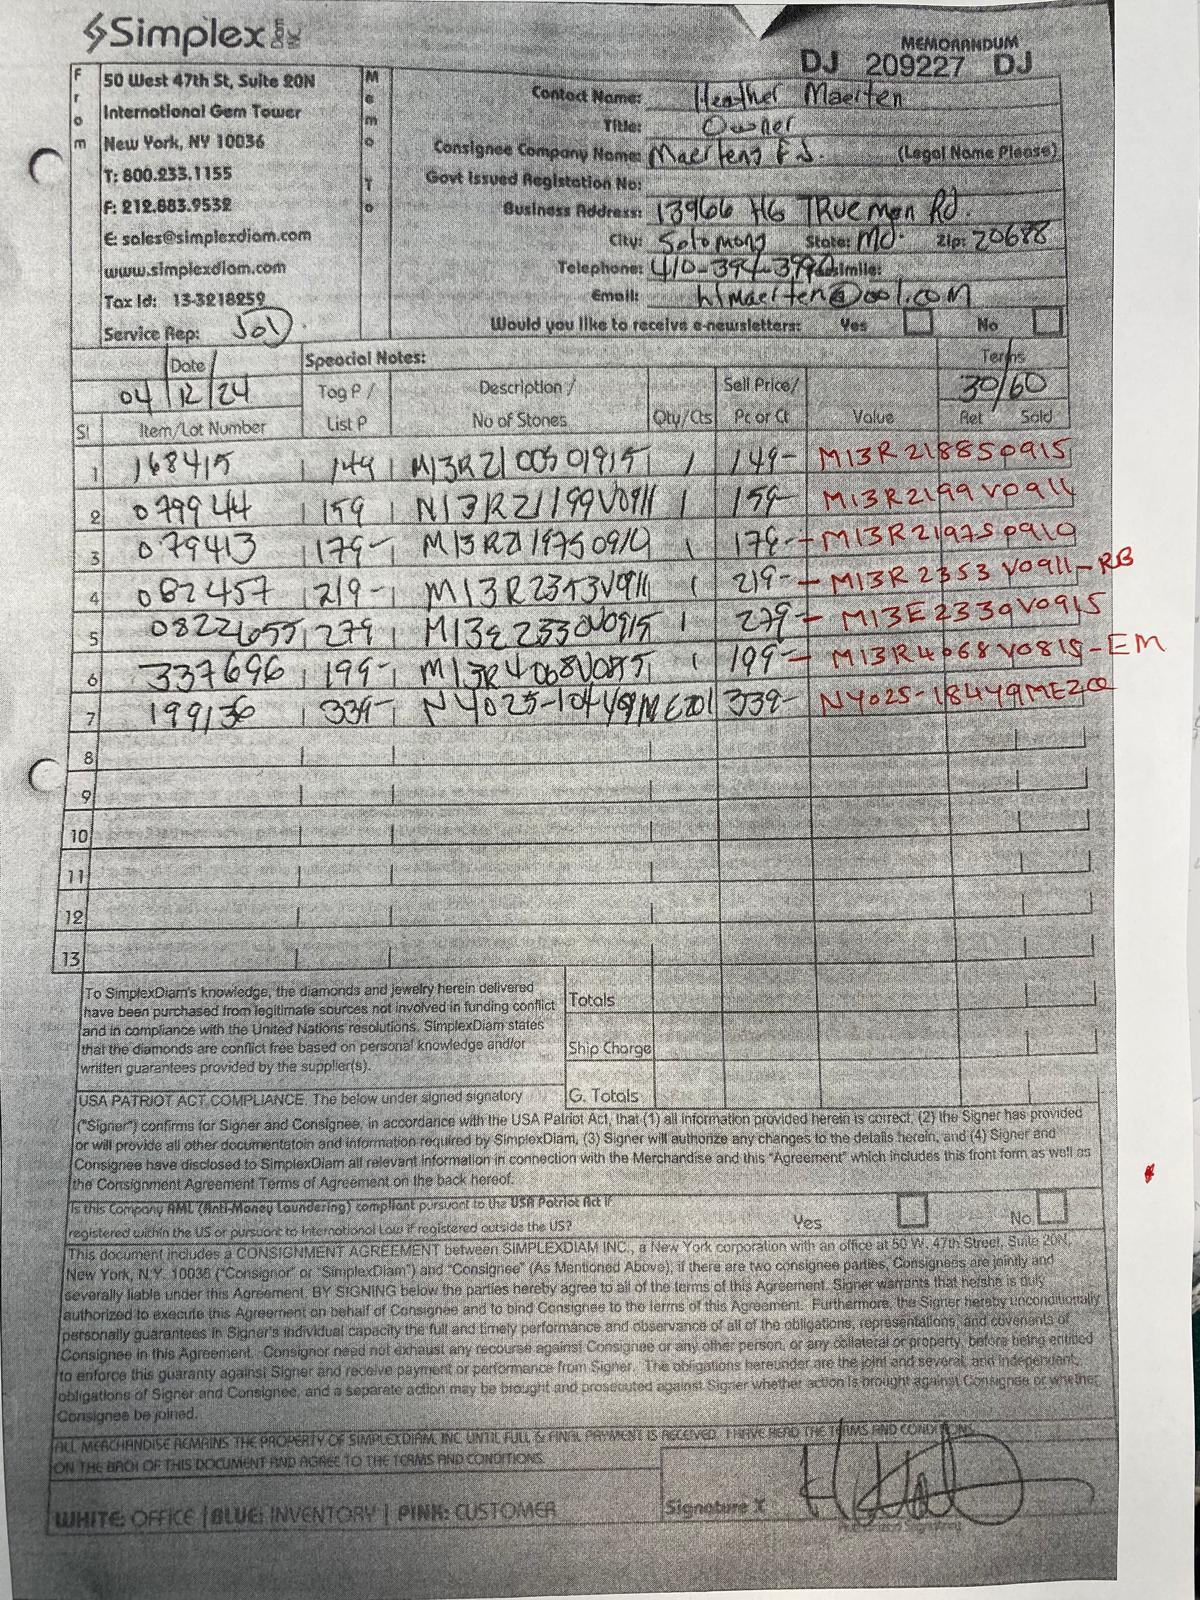 Simplex Diam Inc
MEMORANDUM
DJ 209227 DJ
From
50 West 47th St, Suite 20N
International Gem Tower
New York, NY 10036
T: 800.233.1155
F: 212.883.9532
E: sales@simplexdiam.com
www.simplexdiam.com
Tax Id: 13-3218259
Service Rep:
Memo To
Contact Name: Heather Maerten
Title: Owner
Consignee Company Name: Maertens F.J. (Legal Name Please)
Govt Issued Registation No:
Business Address: 13966 HG TRueman Rd.
City: Solomons State: MD. Zip: 20688
Telephone: 410-394-3990 Facsimile:
Email: hlmaerten@aol.com
Would you like to receive e-newsletters: Yes No
Date
04/12/24
Speacial Notes:
Terms
30/60
Sl Item/Lot Number Tag P / List P Description / No of Stones Qty/Cts Sell Price/ Pc or Ct Value Ret Sold
1 168415 149 M13R21 1 149- M13R2188S0915
2 079944 159 1 159- M13R2199V0911
3 079413 179- M13R219750910 1 179- - M13R2197S0910
4 082457 219- M13R2353V0911 1 219- - M13R2353V0911-RB
5 279 M13E2330V0915 1 279- M13E2330V0915
6 337696 199- M13R4068V0815 1 199- M13R4068V0815-EM
7 199136 339- 339- NY025-18449MEZOQ
8
9
10
11
12
13
To SimplexDiam's knowledge, the diamonds and jewelry herein delivered
have been purchased from legitimate sources not involved in funding conflict
and in compliance with the United Nations resolutions. SimplexDiam states
that the diamonds are conflict free based on personal knowledge and/or
written guarantees provided by the supplier(s).
Totals
Ship Charge
G. Totals
USA PATRIOT ACT COMPLIANCE. The below under signed signatory
("Signer") confirms for Signer and Consignee, in accordance with the USA Patriot Act, that (1) all information provided herein is correct, (2) the Signer has provided
or will provide all other documentatoin and information required by SimplexDiam, (3) Signer will authorize any changes to the details herein, and (4) Signer and
Consignee have disclosed to SimplexDiam all relevant information in connection with the Merchandise and this "Agreement" which includes this front form as well as
the Consignment Agreement Terms of Agreement on the back hereof.
Is this Company AML (Anti-Money Laundering) compliant pursuant to the USA Patriot Act if
registered within the US or pursuant to International Law if registered outside the US? Yes No
This document includes a CONSIGNMENT AGREEMENT between SIMPLEXDIAM INC., a New York corporation with an office at 50 W. 47th Street, Suite 20N,
New York, N.Y. 10036 ("Consignor" or "SimplexDiam") and "Consignee" (As Mentioned Above); if there are two consignee parties, Consignees are jointly and
severally liable under this Agreement. BY SIGNING below the parties hereby agree to all of the terms of this Agreement. Signer warrants that he/she is duly
authorized to execute this Agreement on behalf of Consignee and to bind Consignee to the terms of this Agreement. Furthermore, the Signer hereby unconditionally
personally guarantees in Signer's individual capacity the full and timely performance and observance of all of the obligations, representations, and covenants of
Consignee in this Agreement. Consignor need not exhaust any recourse against Consignee or any other person, or any collateral or property, before being entitled
to enforce this guaranty against Signer and receive payment or performance from Signer. The obligations hereunder are the joint and several, and independent,
obligations of Signer and Consignee, and a separate action may be brought and prosecuted against Signer whether action is brought against Consignee or whether
Consignee be joined.
ALL MERCHANDISE REMAINS THE PROPERTY OF SIMPLEXDIAM, INC. UNTIL FULL & FINAL PAYMENT IS RECEIVED. I HAVE READ THE TERMS AND CONDITIONS
ON THE BACK OF THIS DOCUMENT AND AGREE TO THE TERMS AND CONDITIONS.
WHITE: OFFICE | BLUE: INVENTORY | PINK: CUSTOMER
Signature X